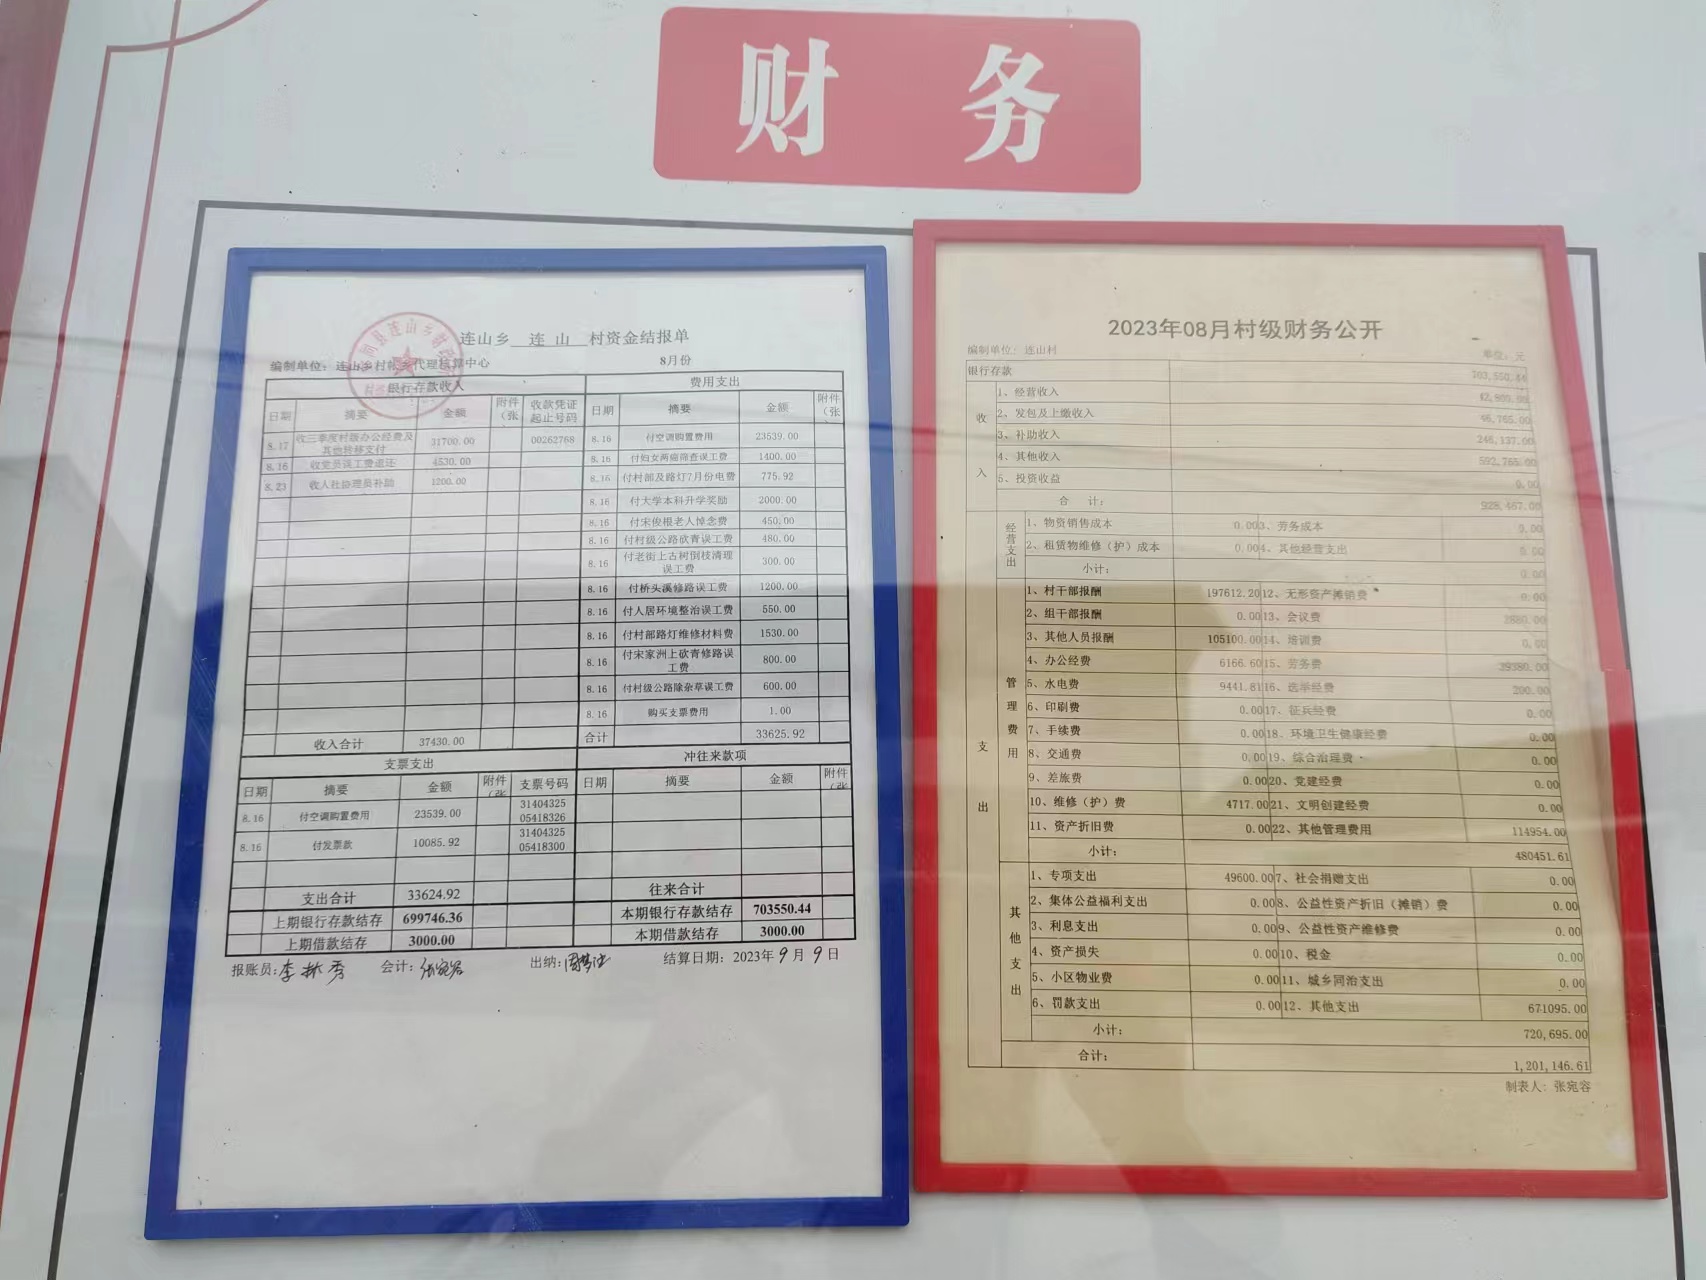 财 务
连山乡 连 山 村资金结报单
编制单位: 连山乡村帐乡代理核算中心 8月份
银行存款收入 费用支出
日期 摘要 金额 附件(张 收款凭证起止号码 日期 摘要 金额 附件(张
8.17 收三季度村级办公经费及其他转移支付 31700.00 00262768 8.16 付空调购置费用 23539.00
8.16 收党员误工费退还 4530.00 8.16 付妇女两癌筛查误工费 1400.00
8.23 收人社协理员补助 1200.00 8.16 付村部及路灯7月份电费 775.92
8.16 付大学本科升学奖励 2000.00
8.16 付宋俊根老人悼念费 450.00
8.16 付村级公路砍青误工费 480.00
8.16 付老街上古树倒枝清理误工费 300.00
8.16 付桥头溪修路误工费 1200.00
8.16 付人居环境整治误工费 550.00
8.16 付村部路灯维修材料费 1530.00
8.16 付宋家洲上砍青修路误工费 800.00
8.16 付村级公路除杂草误工费 600.00
8.16 购买支票费用 1.00
收入合计 37430.00 合计 33625.92
支票支出 冲往来款项
日期 摘要 金额 附件(张 支票号码 日期 摘要 金额 附件(张
8.16 付空调购置费用 23539.00 31404325 05418326
8.16 付发票款 10085.92 31404325 05418300
支出合计 33624.92 往来合计
上期银行存款结存 699746.36 本期银行存款结存 703550.44
上期借款结存 3000.00 本期借款结存 3000.00
报账员: 会计: 出纳: 结算日期: 2023年9月9日
2023年08月村级财务公开
编制单位: 连山村 单位: 元
银行存款 703,550.44
收入
1、经营收入
2、发包及上缴收入 46,765.00
3、补助收入 246,137.00
4、其他收入 592,765.00
5、投资收益 0.00
合 计: 928,467.00
支出
经营支出
1、物资销售成本 0.00 3、劳务成本 0.00
2、租赁物维修(护)成本 0.00 4、其他经营支出 0.00
小计: 0.00
管理费用
1、村干部报酬 197612.20 12、无形资产摊销费 0.00
2、组干部报酬 0.00 13、会议费 2880.00
3、其他人员报酬 105100.00 14、培训费 0.00
4、办公经费 6166.60 15、劳务费 39380.00
5、水电费 9441.81 16、选举经费 200.00
6、印刷费 0.00 17、征兵经费 0.00
7、手续费 0.00 18、环境卫生健康经费 0.00
8、交通费 0.00 19、综合治理费 0.00
9、差旅费 0.00 20、党建经费 0.00
10、维修(护)费 4717.00 21、文明创建经费 0.00
11、资产折旧费 0.00 22、其他管理费用 114954.00
小计: 480451.61
其他支出
1、专项支出 49600.00 7、社会捐赠支出 0.00
2、集体公益福利支出 0.00 8、公益性资产折旧(摊销)费 0.00
3、利息支出 0.00 9、公益性资产维修费 0.00
4、资产损失 0.00 10、税金 0.00
5、小区物业费 0.00 11、城乡同治支出 0.00
6、罚款支出 0.00 12、其他支出 671095.00
小计: 720,695.00
合计: 1,201,146.61
制表人: 张宛容